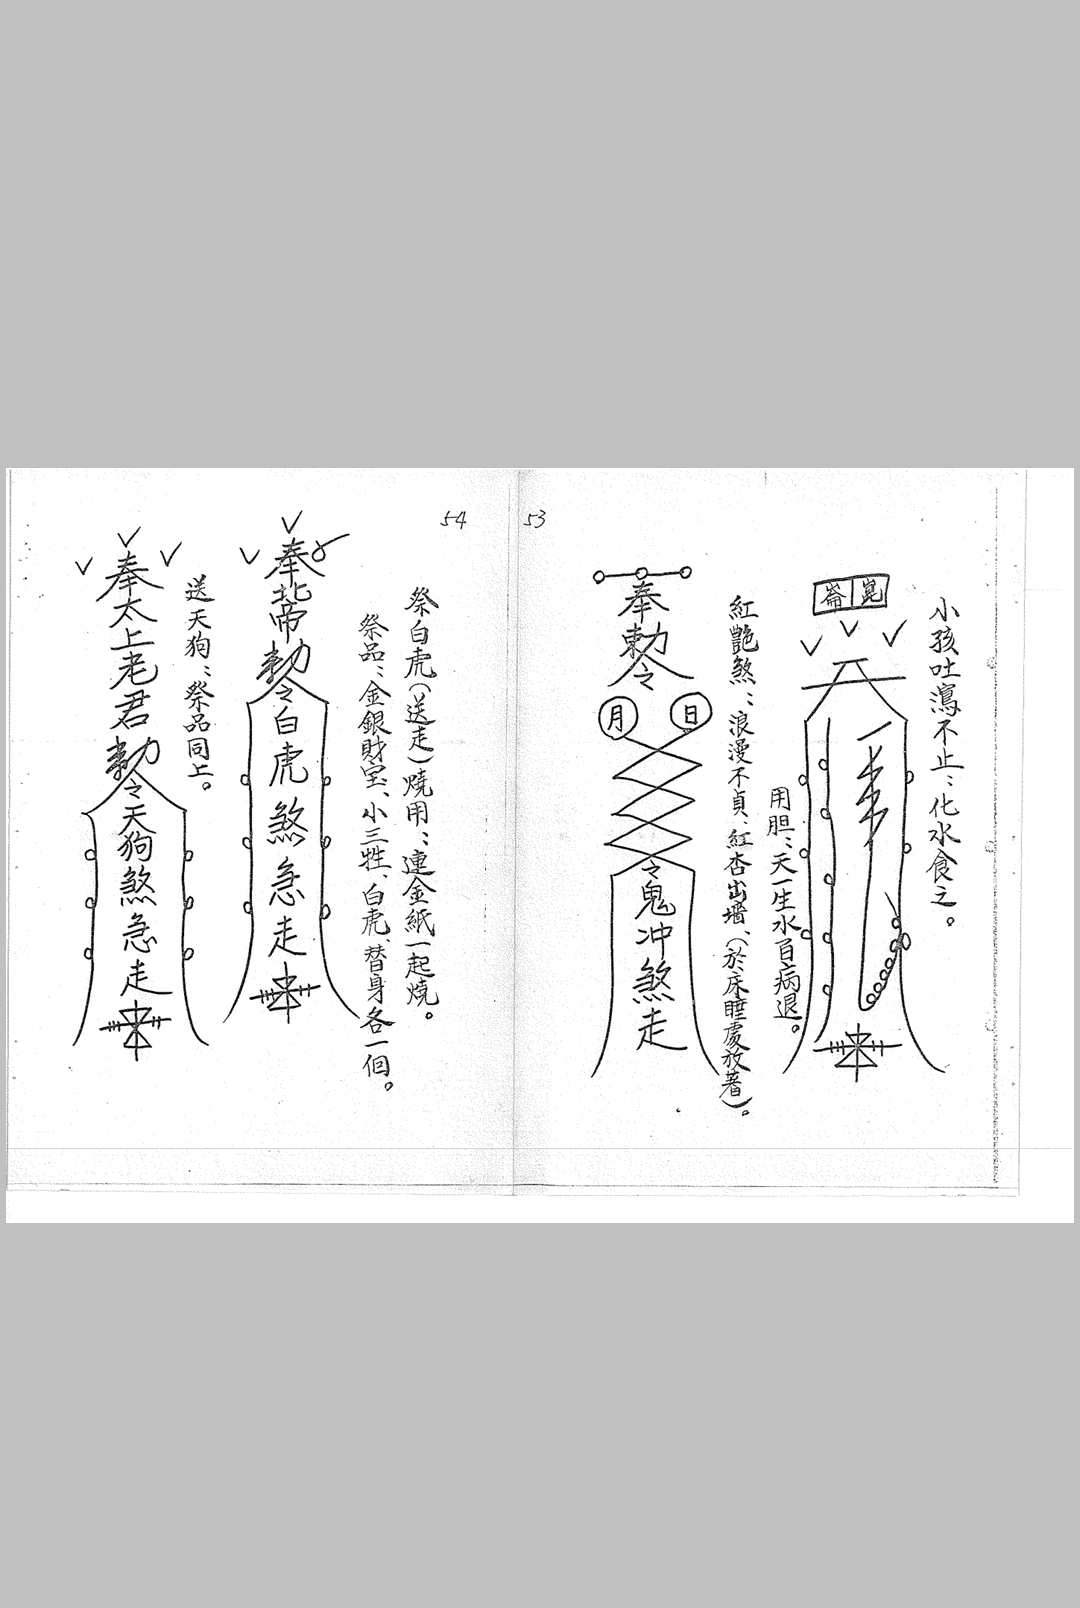 53
小孩吐瀉不止：化水食之。
崑崙
用胆：天一生水百病退。
紅艷煞：浪漫不貞、紅杏出墻、(於床睡處放著)。
奉勅令
日月
令鬼冲煞走
54
祭白虎(送走)燒用：連金紙一起燒。
祭品：金銀財宝、小三牲、白虎、替身各一個。
奉北帝勅令白虎煞急走
送天狗：祭品同上。
奉太上老君勅令天狗煞急走